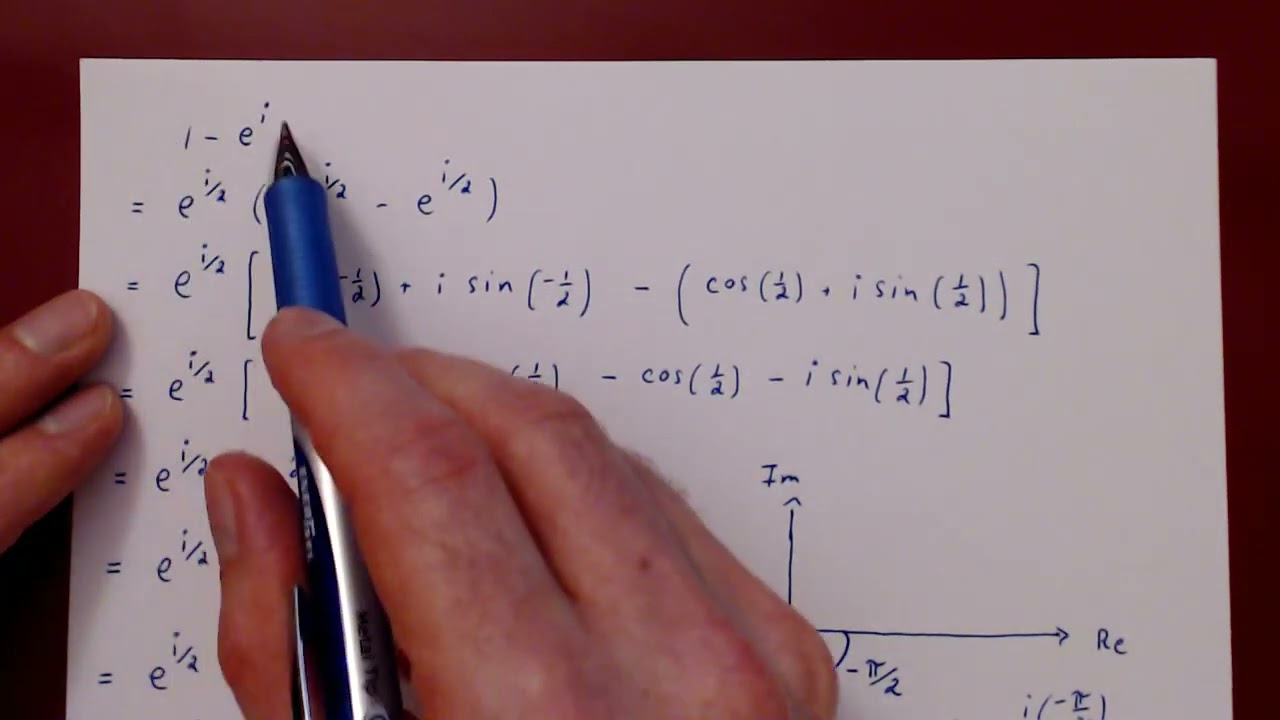 1 - e^i
= e^{i/2} ( ^{i/2} - e^{i/2} )
= e^{i/2} [ -1/2) + i sin (-1/2) - (cos(1/2) + i sin (1/2)) ]
= e^{i/2} [ (1/2) - cos(1/2) - i sin(1/2) ]
= e^{i/2}
Im
= e^{i/2}
Re
= e^{i/2}
-π/2